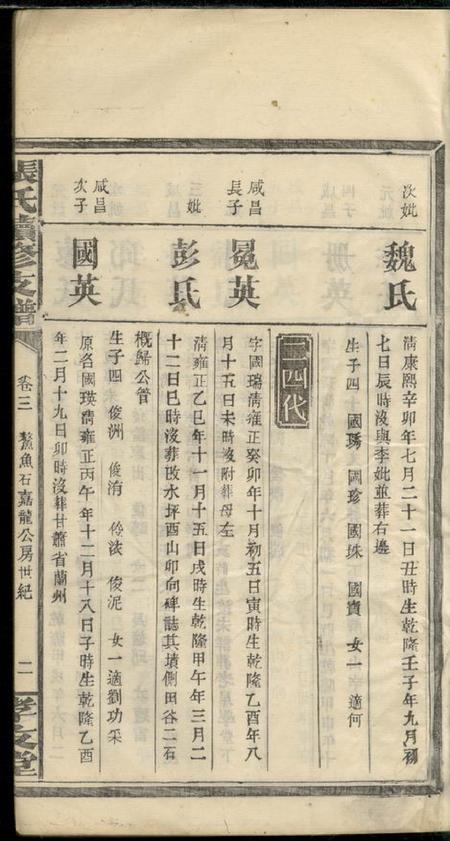 次妣
魏氏
清康熙辛卯年七月二十一日丑時生乾隆壬子年九月初
七日辰時沒與李妣並葬右邊
生子四 國琇 國珍 國珠 國寶 女一 適何
二四代
咸昌
長子
冕英
字國瑞清雍正癸卯年十月初五日寅時生乾隆乙酉年八
月十五日未時沒附葬母左
三妣
彭氏
清雍正乙巳年十一月十五日戌時生乾隆甲午年三月二
十二日巳時沒葬改水坪酉山卯向碑誌其墳側田谷二石
概歸公管
生子四 俊洲 俊洧 俊泥 女一適劉功采
咸昌
次子
國英
原名國瑛清雍正丙午年十二月十八日子時生乾隆乙酉
年二月十九日卯時沒葬甘肅省蘭州
張氏續修支譜
卷三
鰲魚石嘉龍公房世紀
二
孝友堂